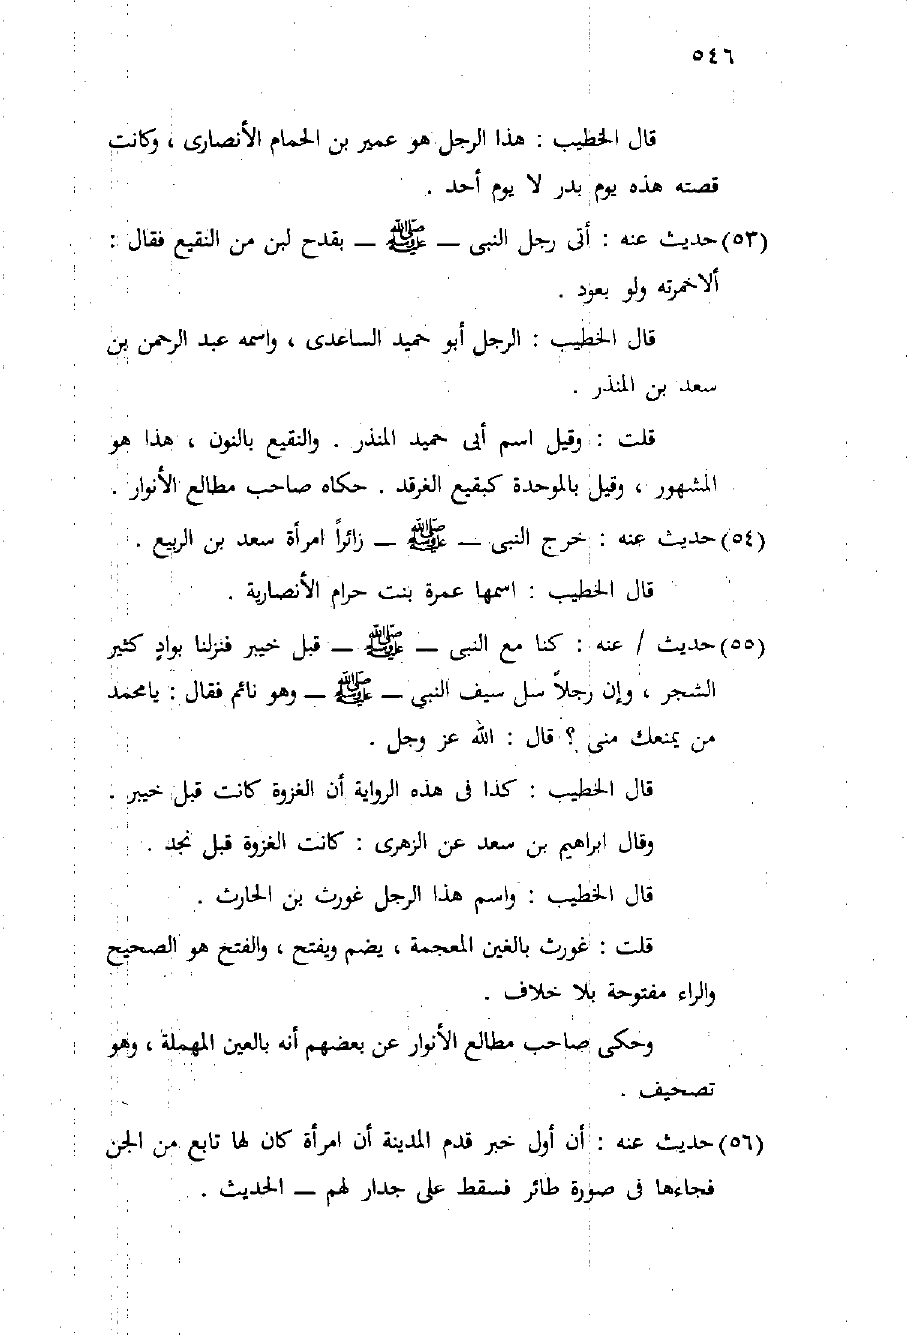 ٥٤٦
قال الخطيب : هذا الرجل هو عمير بن الحمام الأنصارى ، وكانت
قصته هذه يوم بدر لا يوم أحد .
(٥٣) حديث عنه : أتى رجل النبى — ﷺ — بقدح لبن من النقيع فقال :
ألاخمرته ولو بعود .
قال الخطيب : الرجل أبو حميد الساعدى ، واسمه عبد الرحمن بن
سعد بن المنذر .
قلت : وقيل اسم أبى حميد المنذر . والنقيع بالنون ، هذا هو
المشهور ، وقيل بالموحدة كبقيع الغرقد . حكاه صاحب مطالع الأنوار .
(٥٤) حديث عنه : خرج النبى — ﷺ — زائراً امرأة سعد بن الربيع .
قال الخطيب : اسمها عمرة بنت حرام الأنصارية .
(٥٥) حديث / عنه : كنا مع النبى — ﷺ — قبل خيبر فنزلنا بوادٍ كثير
الشجر ، وإن رجلاً سل سيف النبي — ﷺ — وهو نائم فقال : يامحمد
من يمنعك منى ؟ قال : الله عز وجل .
قال الخطيب : كذا فى هذه الرواية أن الغزوة كانت قبل خيبر .
وقال ابراهيم بن سعد عن الزهرى : كانت الغزوة قبل نجد .
قال الخطيب : واسم هذا الرجل غورث بن الحارث .
قلت : غورث بالغين المعجمة ، يضم ويفتح ، والفتخ هو الصحيح
والراء مفتوحة بلا خلاف .
وحكى صاحب مطالع الأنوار عن بعضهم أنه بالعين المهملة ، وهو
تصحيف .
(٥٦) حديث عنه : أن أول خبر قدم المدينة أن امرأة كان لها تابع من الجن
فجاءها فى صورة طائر فسقط على جدار لهم — الحديث .